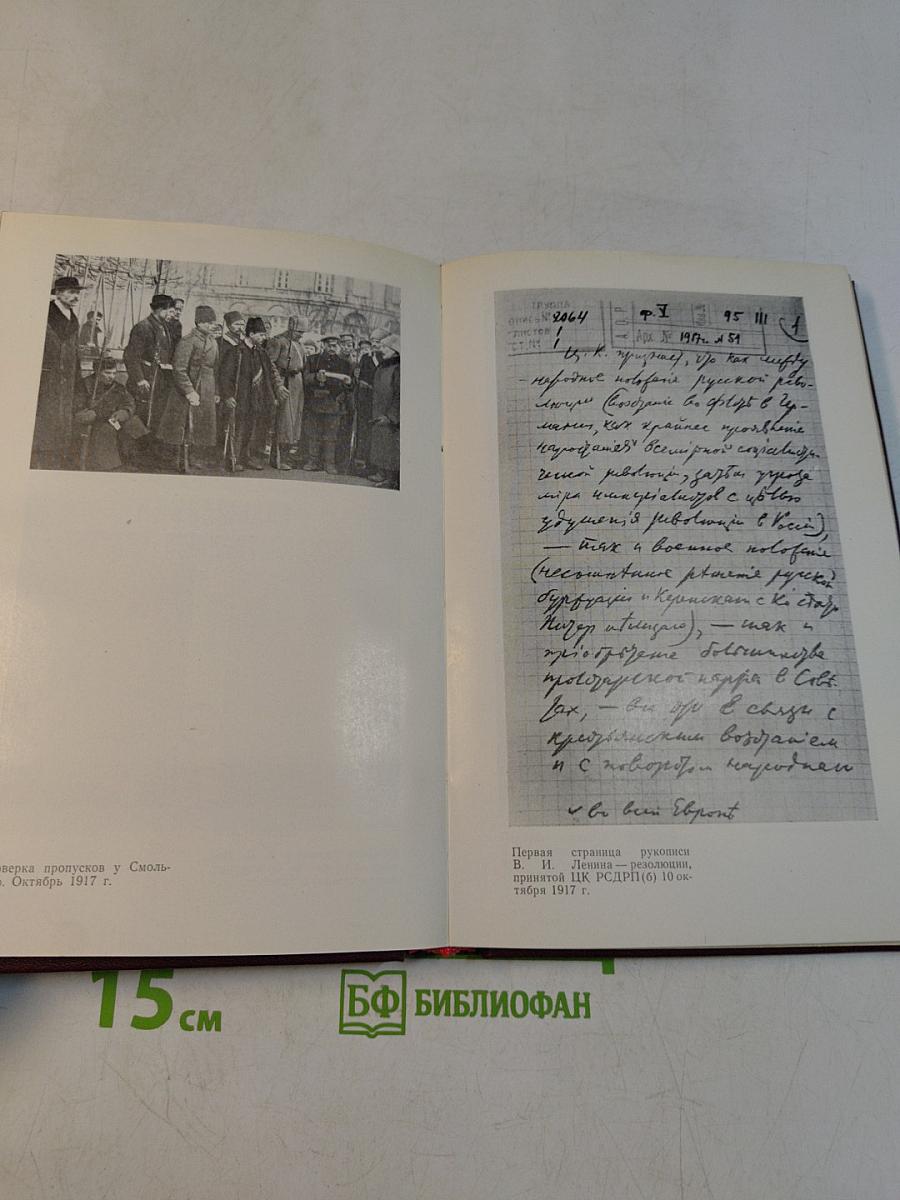 оверка пропусков у Смоль-
о. Октябрь 1917 г.
ГРУППА
ОПИСЬ № 2064
ЛИСТОВ 1
СТ. № 1
Ф. V 95 III 1
Арх. № 1917 г. № 51
Ц. К. признает, что как между-
народное положение русской рево-
люции (возстание во флоте в Гер-
мании, как крайнее проявление
нарастания всемирной социалисти-
ческой революции, затем угроза
мира империалистов с целью
удушения революции в России),
— так и военное положение
(несомненное решение русской
буржуазии и Керенского с Ко сдать
Питер немцам), — так и
приобретение большинства
пролетарской партией в Сове-
тах, — все это в связи с
крестьянским возстанием
и с поворотом народнаго
во всей Европе
Первая страница рукописи
В. И. Ленина — резолюции,
принятой ЦК РСДРП(б) 10 ок-
тября 1917 г.
15 см
БФ БИБЛИОФАН